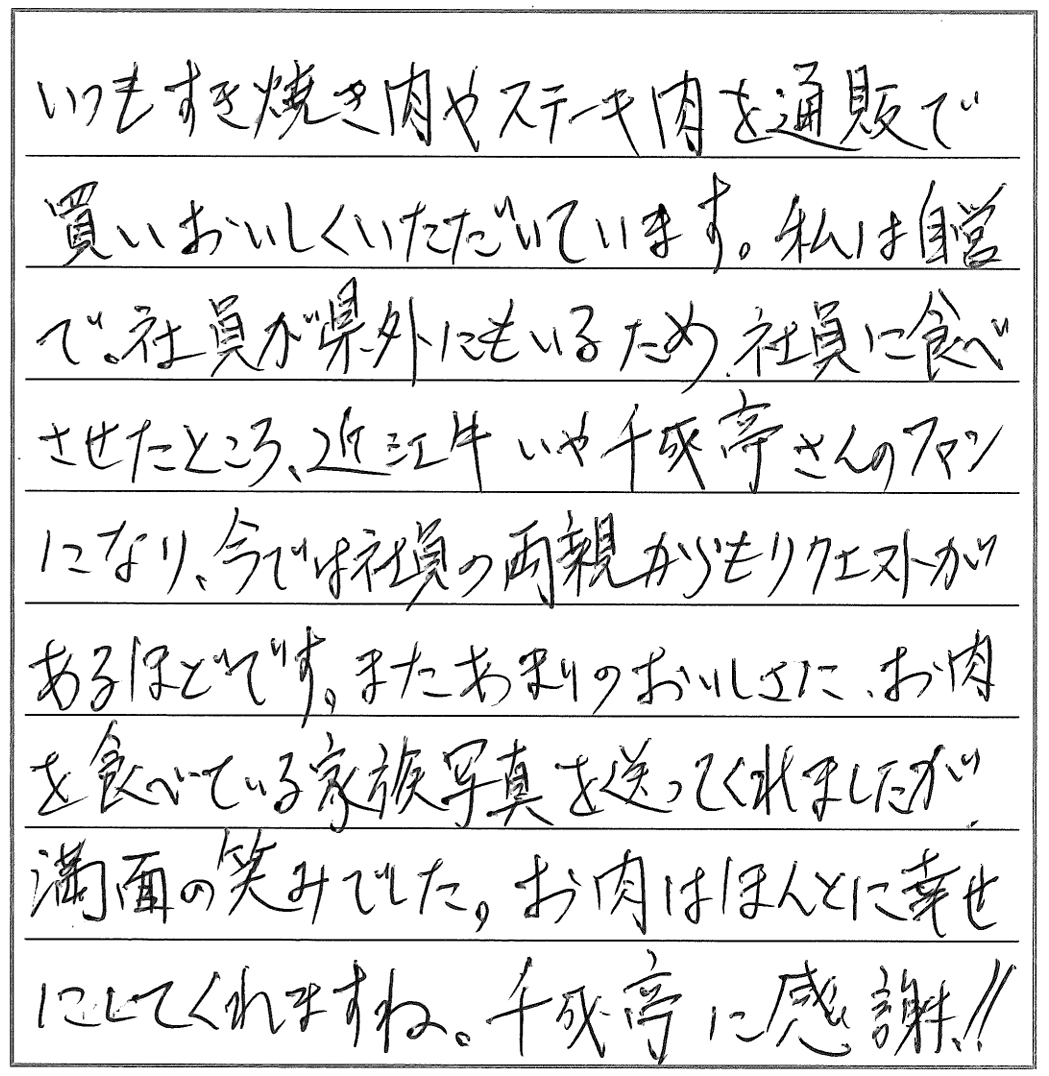 いつもすき焼き肉やステーキ肉を通販で
買いおいしくいただいています。私は自営
で、社員が県外にもいるため、社員に食べ
させたところ、近江牛 いや千成亭さんのファン
になり、今では社員の両親からもリクエストが
あるほどです。またあまりのおいしさに、お肉
を食べている家族写真を送ってくれましたが、
満面の笑みでした。お肉はほんとに幸せ
にしてくれますね。千成亭に感謝!!